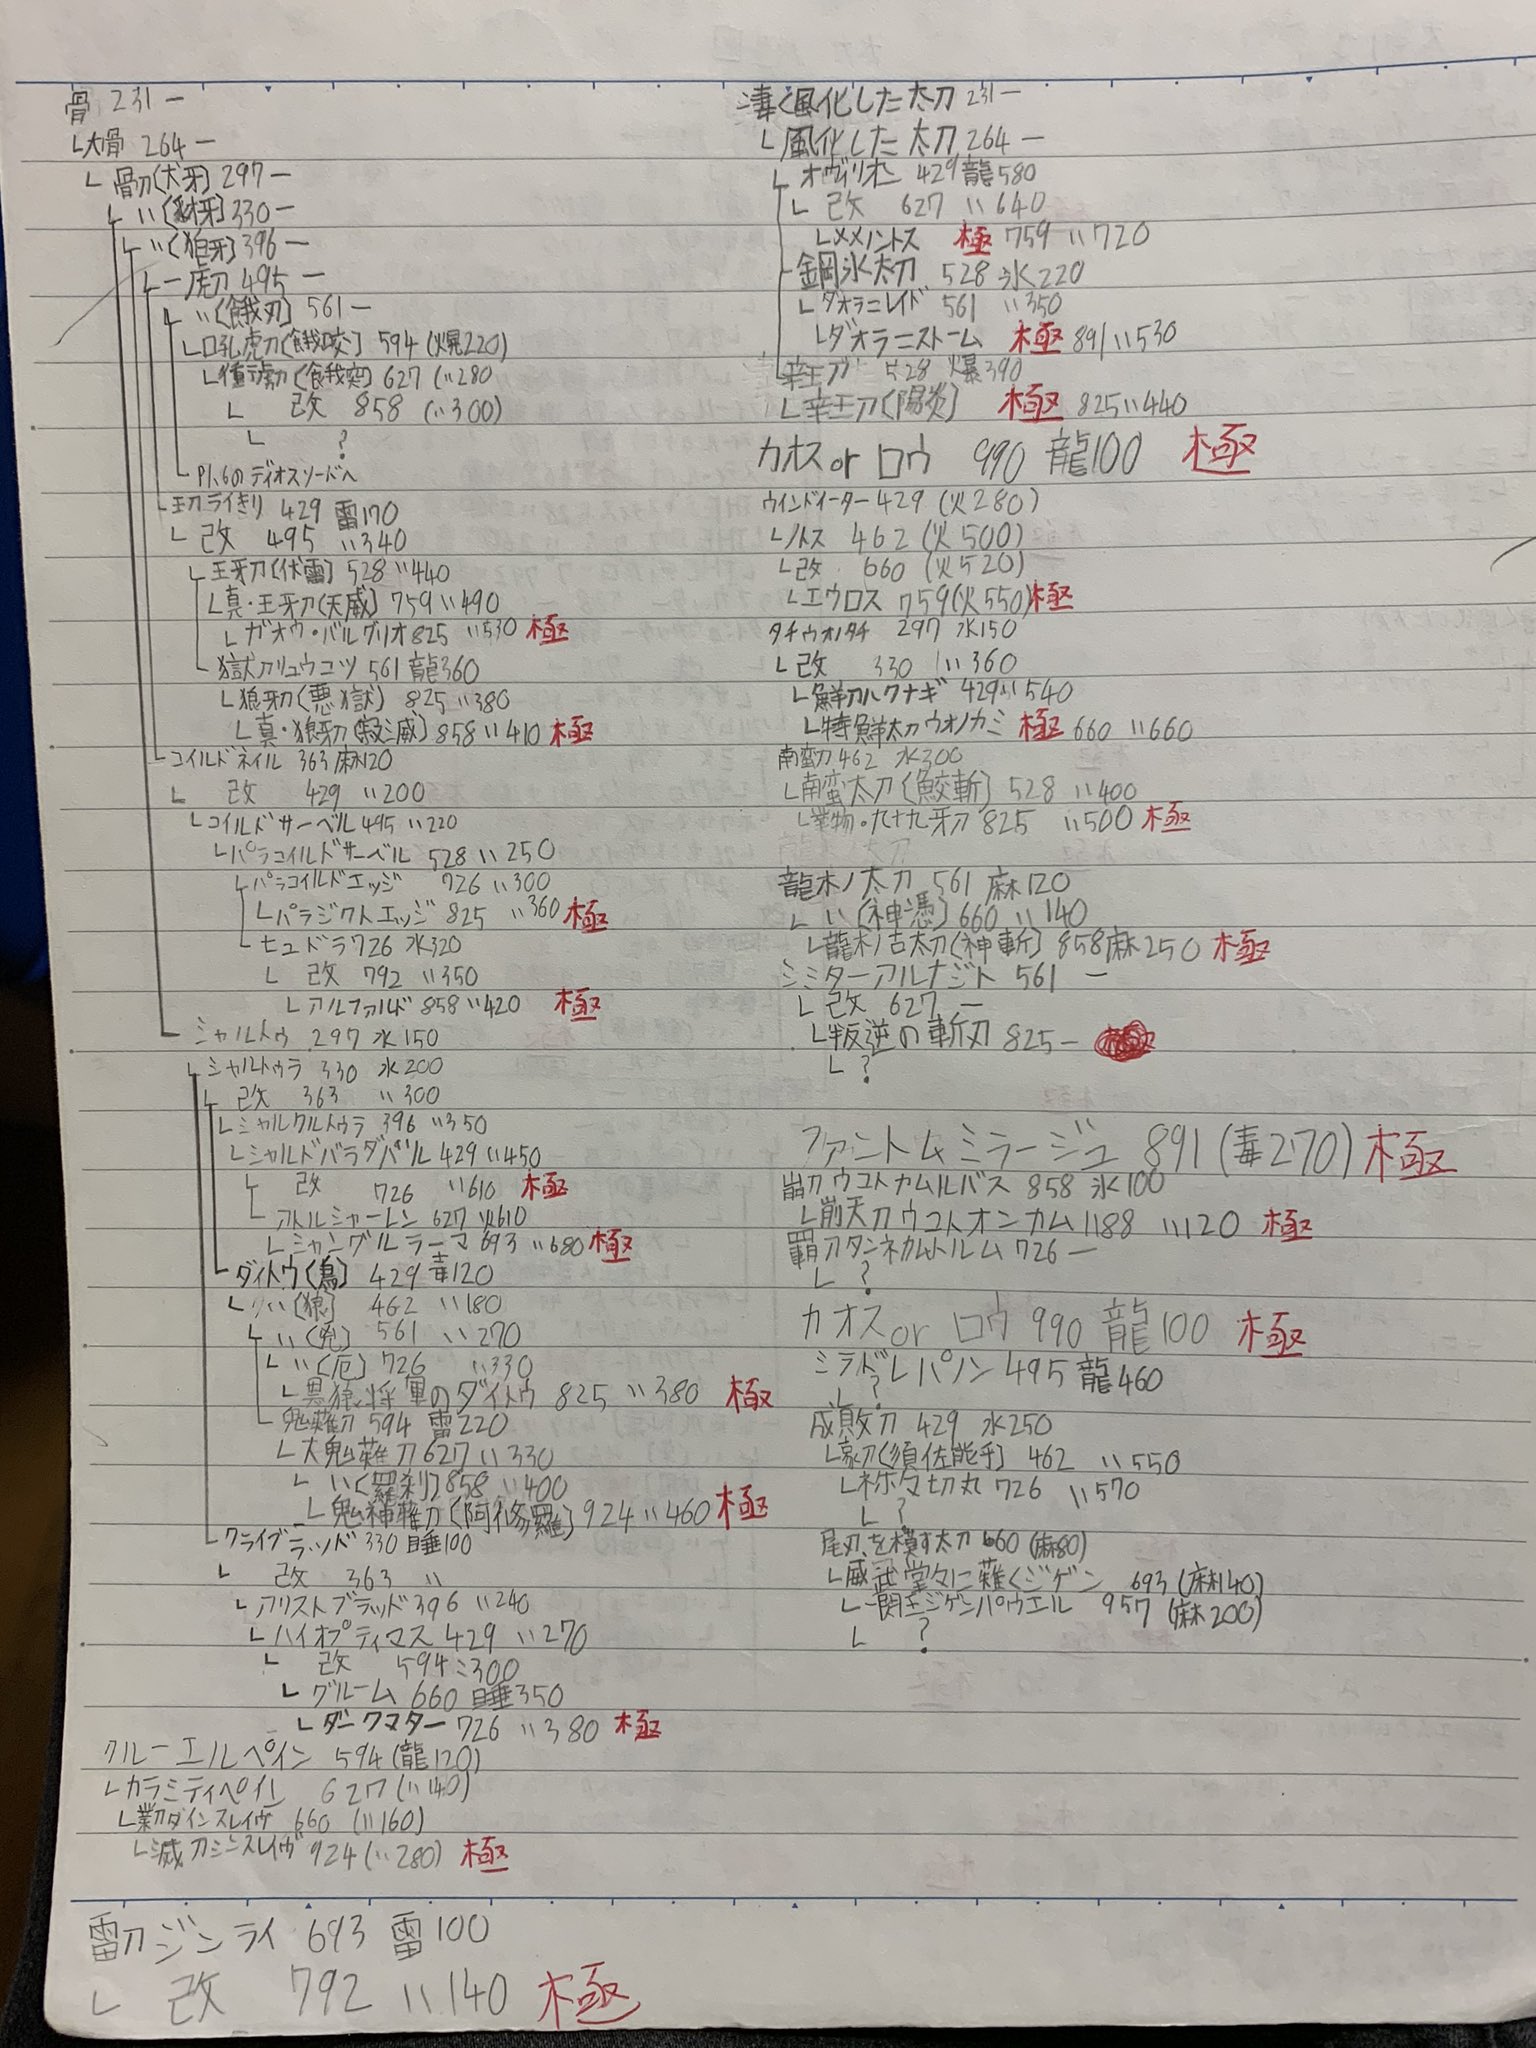 骨 231 ー
└大骨 264 ー
└骨刀(犬牙) 297 ー
└〃(豺牙) 330 ー
└〃(狼牙) 396 ー
└一虎刀 495 ー
└〃(餓刃) 561 ー
└吼虎刀(餓咬) 594 (爆220)
└(餓突) 627 (〃280
└ 改 858 (〃300)
└ ?
└P1、6のディオスソードへ
└王刀ライきり 429 雷170
└ 改 495 〃340
└王牙刀(伏雷) 528 〃440
└真・王牙刀(天威) 759 〃490
└ガオウ・バルグリオ 825 〃530 極
└獄刀リュウコツ 561 龍360
└狼牙刀(悪獄) 825 〃380
└真・狼牙刀(殺滅) 858 〃410 極
└コイルドネイル 363 麻120
└ 改 429 〃200
└コイルドサーベル 495 〃220
└パラコイルドサーベル 528 〃250
└パラコイルドエッジ 726 〃300
└パラジクトエッジ 825 〃360 極
└ヒュドラ 726 水320
└ 改 792 〃350
└アルファルド 858 〃420 極
└シャルトゥ 297 氷150
└シャルトゥラ 330 氷200
└ 改 363 〃300
└シャルクルトゥラ 396 〃350
└シャルドバラダバル 429 〃450
└ 改 726 〃610 極
└アトルシャーレン 627 火610
└シャングルラーマ 693 〃680 極
└ダイトウ(鳥) 429 毒120
└〃(狼) 462 〃180
└〃(兇) 561 〃270
└〃(厄) 726 〃330
└黒狼将軍のダイトウ 825 〃380 極
└鬼薙刀 594 雷220
└大鬼薙刀 627 〃330
└〃(羅刹) 858 〃400
└鬼神薙刀(阿修羅) 924 〃460 極
└クライブラッド 330 睡100
└ 改 363 〃
└アリストブラッド 396 〃240
└ハイオプティマス 429 〃270
└ 改 594 〃300
└グルーム 660 睡350
└ダークマター 726 〃380 極
クルーエルペイン 594 (龍120)
└カラミティペイン 627 (〃140)
└業刀ダインスレイヴ 660 (〃160)
└滅刀シンスレイヴ 924 (〃280) 極
雷刀ジンライ 693 雷100
└ 改 792 〃140 極
凄く風化した太刀 231 ー
└風化した太刀 264 ー
└オヴィリオン 429 龍580
└改 627 〃640
└メメントス 極 759 〃720
└鋼氷太刀 528 氷220
└ダオラ=レイド 561 〃350
└ダオラ=ストーム 極 891 〃530
└辛王刀 528 爆390
└辛王刀(陽炎) 極 825 〃440
カオス or ロウ 990 龍100 極
ウインドイーター 429 (火280)
└ノトス 462 (火500)
└改 660 (火520)
└エウロス 759 (火550) 極
タチウオノタチ 297 水150
└改 330 〃360
└鮮刀ハクナギ 429 〃540
└特鮮太刀ウオノカミ 極 660 〃660
南蛮刀 462 水300
└南蛮太刀(鮫斬) 528 〃400
└業物・九十九牙刀 825 〃500 極
龍木ノ太刀 561 麻120
└〃(神憑) 660 〃140
└龍木ノ古太刀(神斬) 858 麻250 極
シミターアルナジト 561 ー
└改 627 ー
└叛逆の斬刃 825 ー
└?
ファントムミラージュ 891 (毒270) 極
崩刀ウコトカムルバス 858 氷100
└崩天刀ウコトオンカム 1188 〃120 極
覇刀タンネカムトルム 726 ー
└ ?
カオス or ロウ 990 龍100 極
ミラドレパノン 495 龍460
└ ?
成敗刀 429 氷250
└豪刀(須佐能乎) 462 〃550
└祢々切丸 726 〃570
└ ?
尾刃を模す太刀 660 (麻80)
└威武堂々に薙ぐジゲン 693 (麻140)
└一閃王ジゲンパウエル 957 (麻200)
└ ?